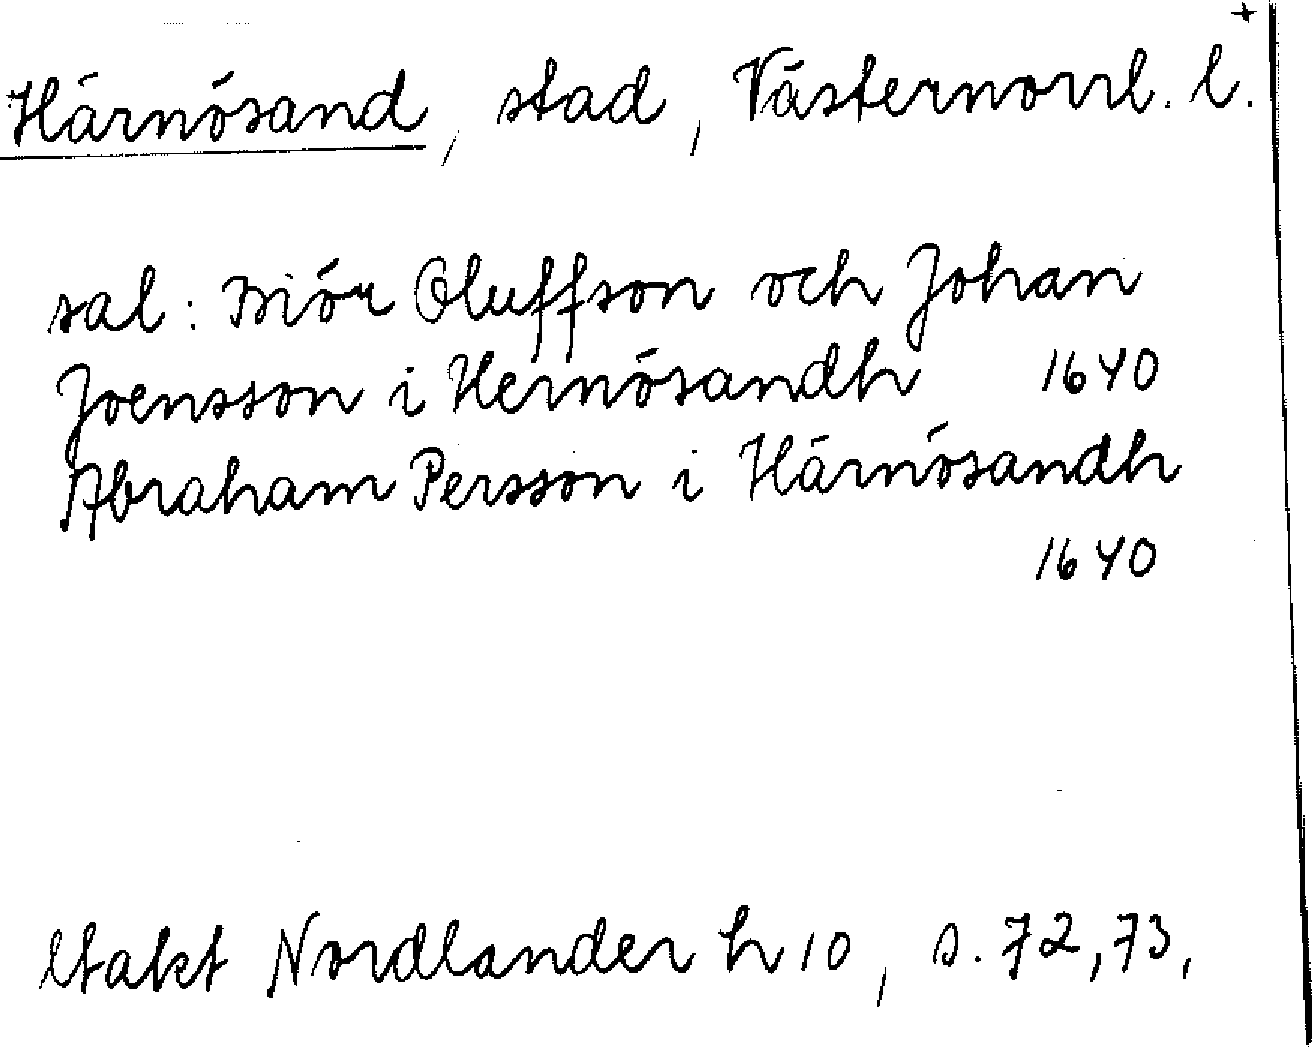 +
Härnösand, stad, Västernorrl. l.
sal: Biör Oluffson och Johan
Joensson i Hernösandh 1640
Abraham Persson i Härnösandh
1640
Utakt Nordlander h 10, s. 72, 73,